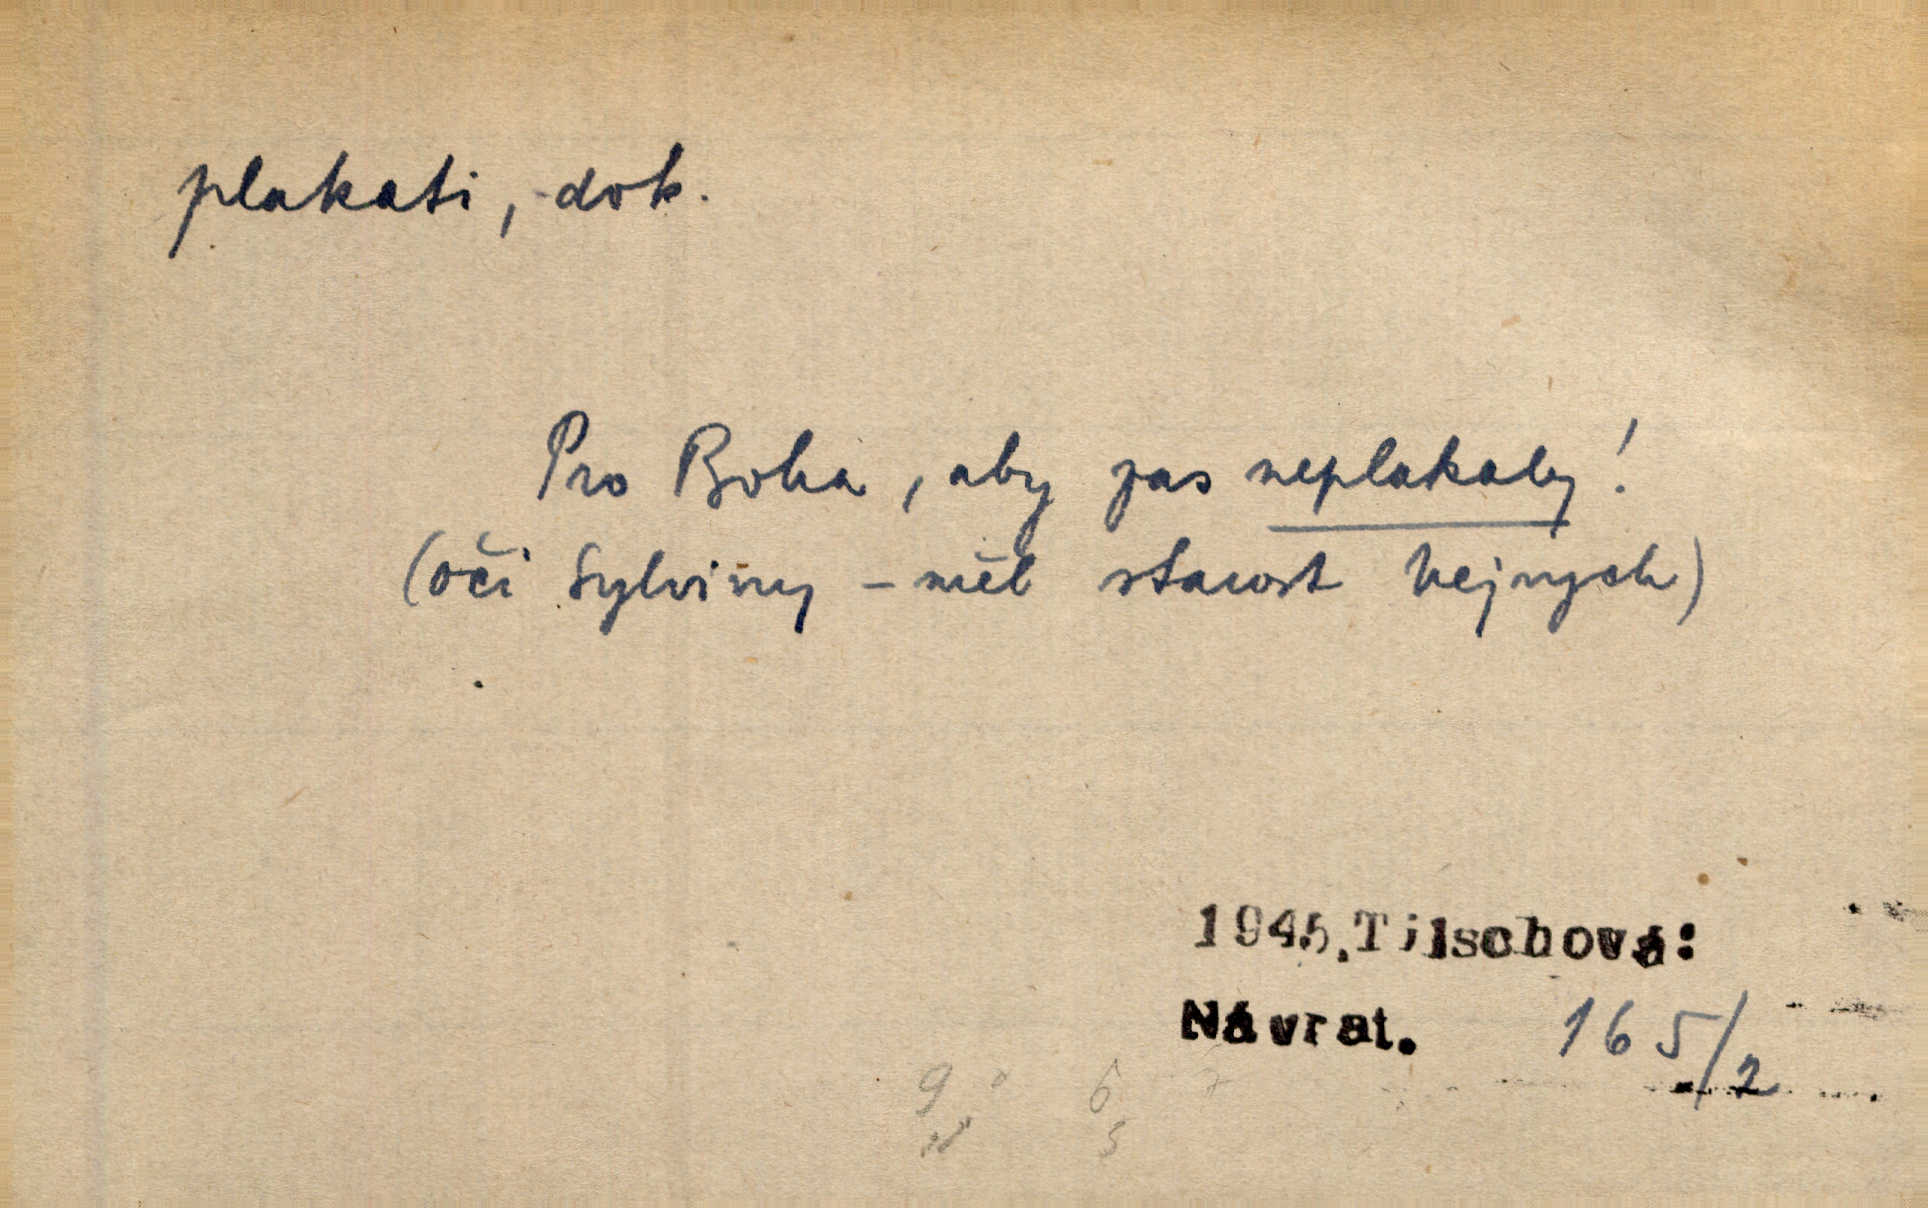 plakati, dok.
Pro Boha, aby zas neplakaly!
(oči Sylviny – měl starost Hejnych)
1945. Tilschová:
Návrat. 165/2